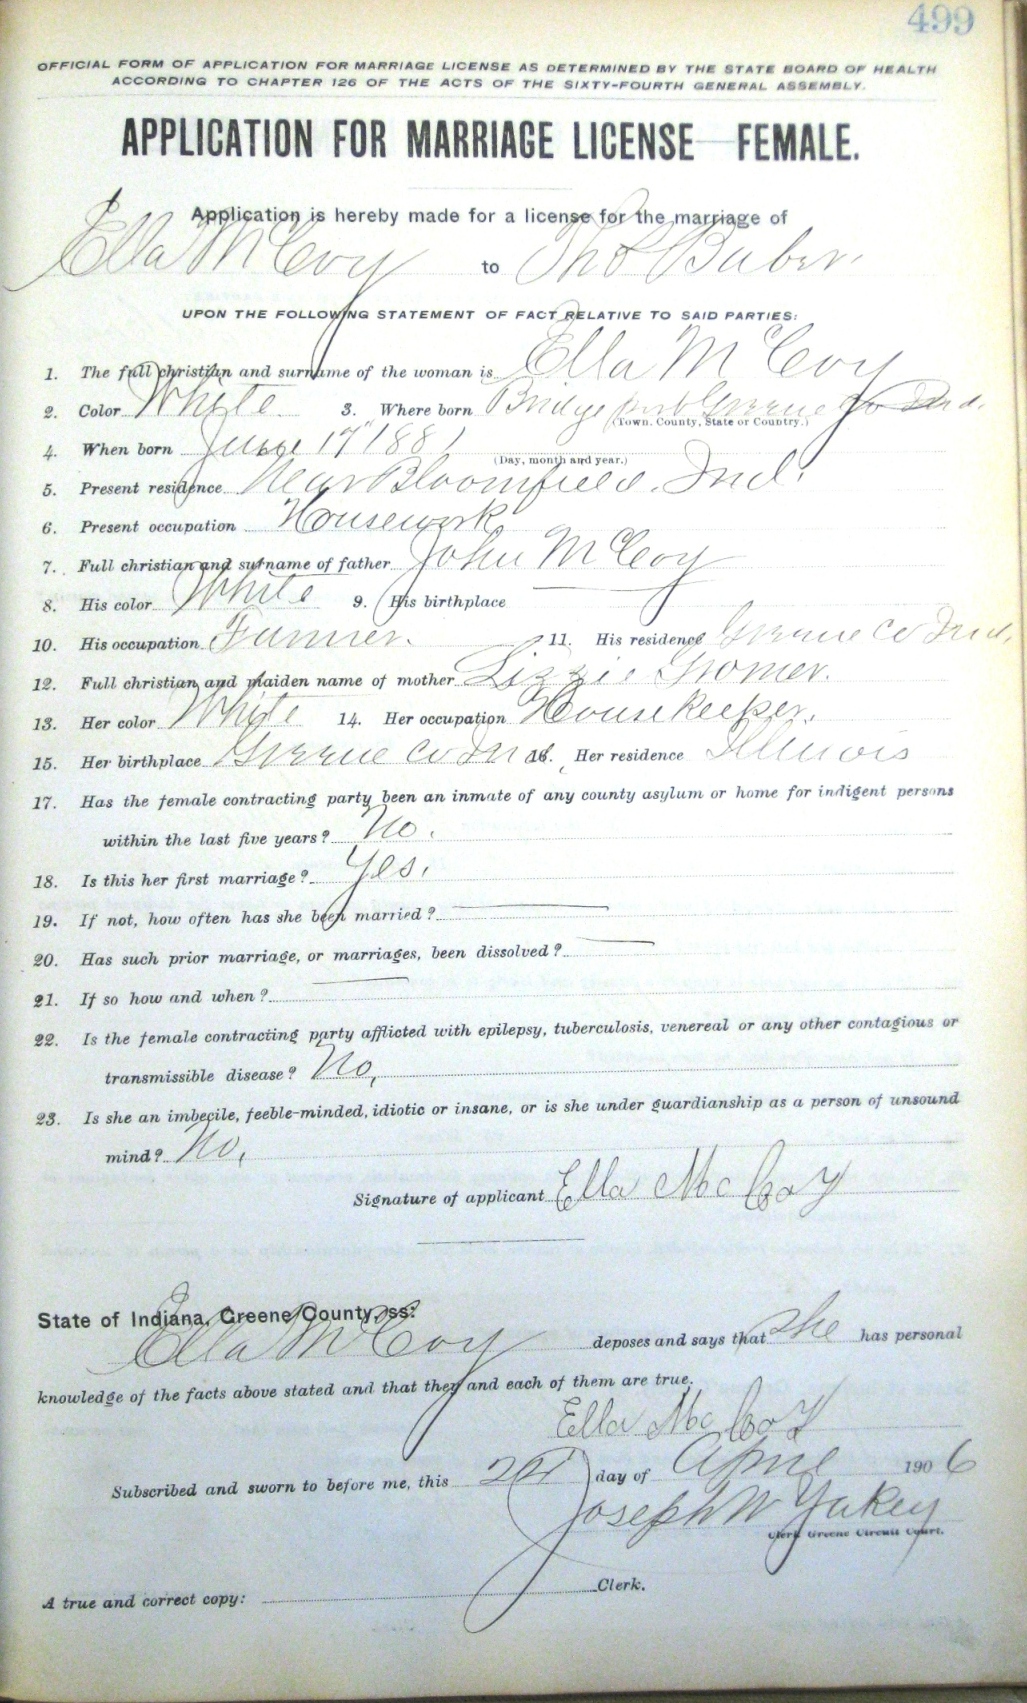 499
OFFICIAL FORM OF APPLICATION FOR MARRIAGE LICENSE AS DETERMINED BY THE STATE BOARD OF HEALTH
ACCORDING TO CHAPTER 126 OF THE ACTS OF THE SIXTY-FOURTH GENERAL ASSEMBLY.
APPLICATION FOR MARRIAGE LICENSE FEMALE.
Application is hereby made for a license for the marriage of
Ella McCoy to Thos Baber.
UPON THE FOLLOWING STATEMENT OF FACT RELATIVE TO SAID PARTIES:
1. The full christian and surname of the woman is Ella McCoy
2. Color White 3. Where born Bridgeport Greene Co Ind.
(Town, County, State or Country.)
4. When born June 17" 1881
(Day, month and year.)
5. Present residence Near Bloomfield, Ind.
6. Present occupation Housework
7. Full christian and surname of father John McCoy
8. His color White 9. His birthplace
10. His occupation Farmer. 11. His residence Greene Co Ind.
12. Full christian and maiden name of mother Lizzie
13. Her color White 14. Her occupation Housekeeper.
15. Her birthplace Greene Co Ind 16. Her residence Illinois
17. Has the female contracting party been an inmate of any county asylum or home for indigent persons
within the last five years? No.
18. Is this her first marriage? Yes.
19. If not, how often has she been married?
20. Has such prior marriage, or marriages, been dissolved?
21. If so how and when?
22. Is the female contracting party afflicted with epilepsy, tuberculosis, venereal or any other contagious or
transmissible disease? No,
23. Is she an imbecile, feeble-minded, idiotic or insane, or is she under guardianship as a person of unsound
mind? No,
Signature of applicant Ella McCoy
State of Indiana, Greene County, ss:
Ella McCoy deposes and says that she has personal
knowledge of the facts above stated and that they and each of them are true.
Ella McCoy
Subscribed and sworn to before me, this day of April 1906
Joseph W Yakey
Clerk Greene Circuit Court.
A true and correct copy: Clerk.